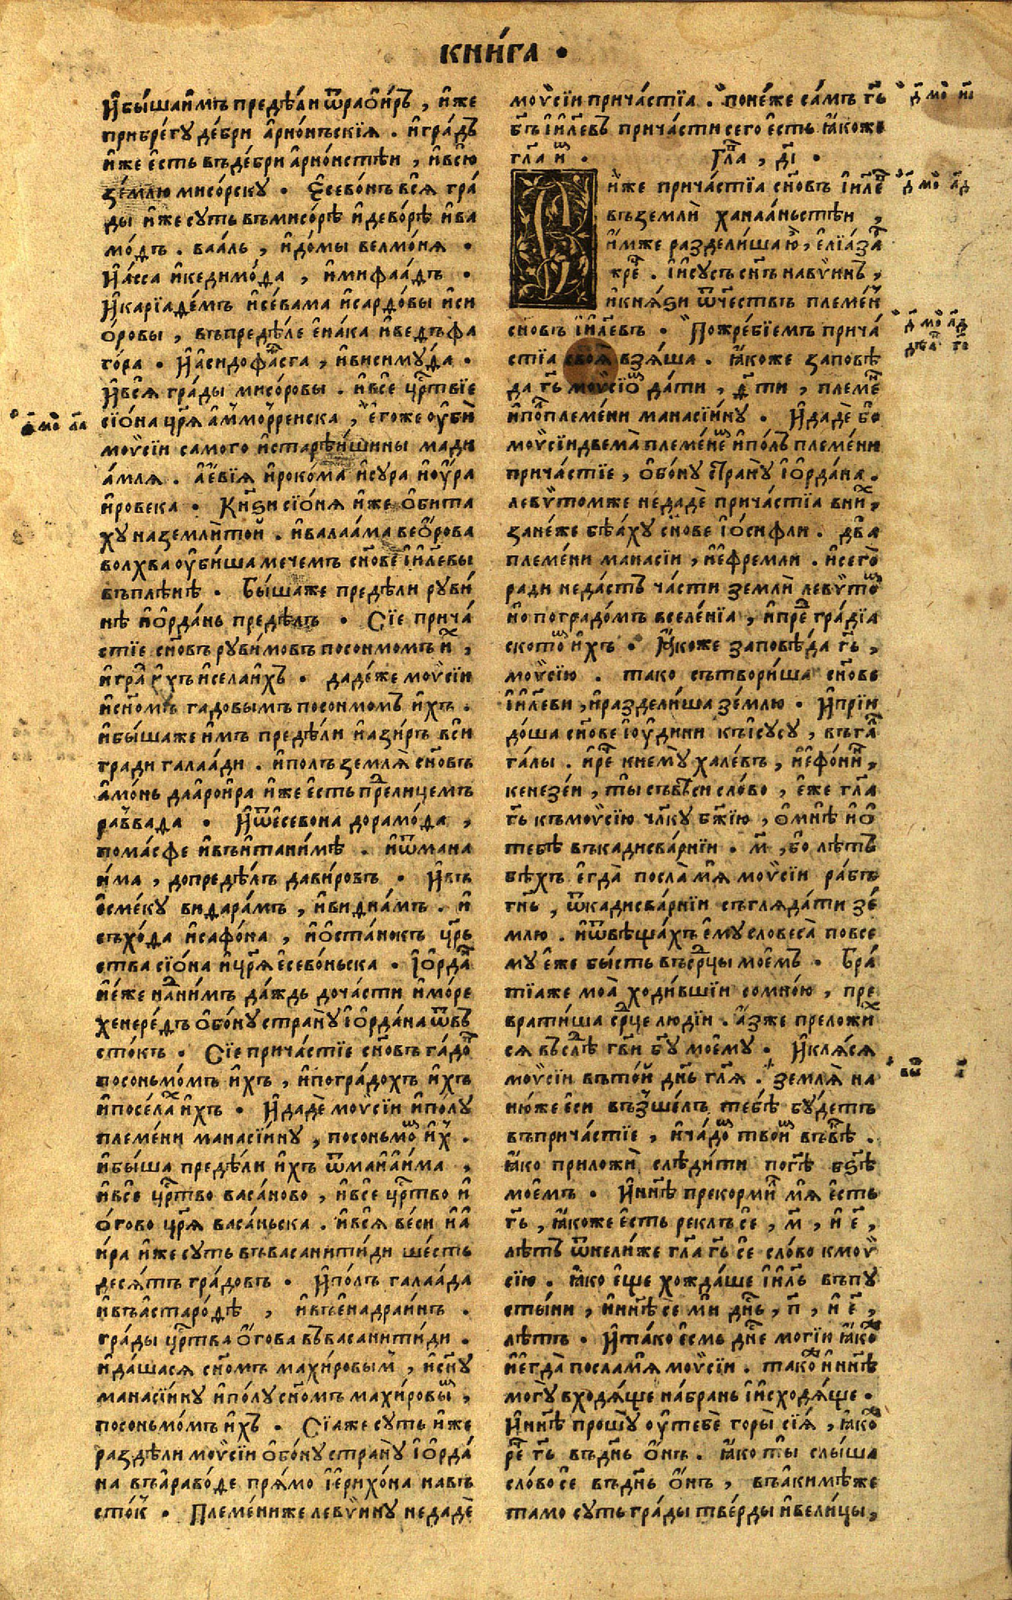 КНИ́ГА •
И҆бы́шаи҆мъ преде́ли ѿрао҆и́ръ , и҆́же
прибре́гу де́бри а҆рно́нъскїѧ . и҆гра́дъ
и҆́же є҆́сть въде́бри а҆рно́нстѣи , и҆всю̀
зе́млю мисо́рску • Є҆сево́нъ всѧ̀ гра́
ды и҆́же суть въмисо́рѣ и҆дево́рѣ и҆ва
мо́дъ . ваа́ль , и҆до́мы велмо́нѧ •
И҆а́сса и҆кедимо́да , и҆мифаа́дъ •
И҆карїаде́мъ и҆се́вама и҆сардо́вы и҆си
о́ровы , въпреде́ле є҆на́ка и҆ведъфа
го́ра • И҆а҆сидофа́сга , и҆висиму́да •
И҆всѧ̀ гра́ды мисо́ровы . и҆всѐ црⷭ҇твїе
сїо́на цр҃ѧ а҆ммо́рренска , є҆го́же ѹ҆бѝ
мо
ѵсїи самого и҆старѣ́ишины мади
а́млѧ . а҆е́вїѧ и҆роко́ма и҆су́ра и҆ѹ҆́ра
и҆ровека • Кнѧ҃ѕи сїо́нѧ и҆́же ѻ҆бита
ху наземлѝтои . и҆валаа́ма вео҆́рова
волхва ѹ҆би́ша мечемъ сн҃ове і҆и҃левы
въплѣ́нѣ • Бы́шаже преде́ли руви́
нѣ і҆ѻ҆рда́нь преде́лъ • Сїе прича́
стїе сн҃овъ руви́мовъ посонмомъ и҆́х ,
и҆гра́ды и҆́хъ и҆села̀и҆́хъ • даде́же моѵсїи
и҆сн҃о́мъ гадовымъ посонмомъ и҆́хъ .
и҆бы́шаже и҆̀мъ преде́ли и҆а҆зи́ръ вси
гради галаа́ди . и҆полъ землѧ̀ сн҃овъ
а҆мо́нь даа҆рои҆ра и҆́же є҆́сть преⷣли́цемъ
ра́ввада • И҆ѿе҆севона дорамо́да ,
пома́сфе и҆въи҆тани́мѣ . и҆ѿмана
и́ма , допреде́лъ дави́ровъ • И҆въ
ѻ҆сме́ку видара́мъ , и҆видна́мъ . и҆
съхо́да и҆сафо́на , и҆ѻ҆ста́нокъ црⷭ҇ь
ства сїо́на и҆цр҃ѧ є҆сево́ньска • І҆ѻ҆рда́н
не́же на́ними да́ждь дочасти и҆мо́ре
хенере́дъ ѻ҆бо́ну страну̀ і҆ѻ҆рда́на ѿвъ
сто́къ • Сїе прича́стїе сн҃овъ га́доⷡ
посоньмо́мъ и҆́хъ , и҆погра́дохъ и҆́хъ
и҆посе́лаⷯ и҆́хъ • И҆дадѐ моѵсїи и҆полу
племе́ни манасїи́ну , посоньмоⷨ и҆́х .
и҆бы́ша преде́ли и҆́хъ ѿмаи҆аи́ма ,
и҆всѐ црⷭ҇тво васа́ново , и҆все црⷭ҇тво и҆
ѻ҆́гово цр҃ѧ васа́ньска . и҆всѧ̀ ве́си и҆а҆
и́ра и҆́же суть въвасанити́ди ше́сть
десѧ́тъ гра́довъ • И҆по́лъ галаа́да
и҆въа҆старо́дѣ , и҆въе҆надраи́нъ .
гра́ды црⷭ҇тва ѻ҆́гова въвасанити́ди .
и҆да́шасѧ сн҃омъ махи́ровым , и҆сн҃у
манасїи́ну и҆по́лу сн҃омъ махи́ровыⷨ ,
посоньмо́мъ и҆́хъ • Сїѧже суть и҆́же
раздели моѵсїи ѻ҆бо́ну страну̀ і҆ѻ҆рда́
на въа҆раво́де прѧ́мо і҆е҆рихо́на навъ
сто́к • Племе́ниже левѵину недадѐ
моѵсїи прича́стїа . поне́же са́мъ гь҃
бг҃ъ і҆и҃левъ причасти сего є҆́сть ꙗ҆́коже
гл҃а и҆̀ •
Гл҃а , д҃і •
Си́же прича́стїа сн҃овъ і҆и҃леⷡ
въземлѝ ханаа́ньстѣи ,
и҆́мже раздели́ша ю҆̀ , є҆лїаза́ⷬ
жрⷪ҇е . і҆и҆су́съ сн҃ъ навѵ́инъ ,
и҆кнѧ́ѕи ѿче́ствъ племе́н
сно́въ і҆и҃левъ • Пожре́бїемъ прича́
стїа своѧ̀ взѧ́ша . ꙗ҆́коже запове́
да гь҃ моѵсїоⷨ да́ти , д҃ ти , племе́ⷩ
и҆поⷧ҇племе́ни манасїи́ну • И҆дадѐ бо
моѵсїи двема̀ племе́неⷨ и҆по́лъ племе́ни
прича́стїе , ѻ҆бо́ну страну̀ і҆ѻ҆рда́на .
левѵтомже недадѐ прича́стїа вниⷯ ,
зане́же бѣ́аху сн҃ове і҆ѻ҆́сифли . два̀
племе́ни манасїи , и҆е҆фремли . и҆сего̀
ради неда́стъ ча́сти землѝ левѵтоⷨ
но погра́домъ вселе́нїа , и҆преⷣ гра́дїа
ското́ⷨ и҆́хъ • Ꙗ҆́коже запове́да гь҃ ,
моѵсїю . тако сътвори́ша сн҃ове
і҆и҃леви , и҆раздели́ша зе́млю • И҆прїи
до́ша сн҃ове і҆ѹ҆дини къі҆су́су , въга́ⷧ
га́лы . и҆реⷱ҇ кнему̀ хале́въ , и҆е҆фо́нни ,
кенезе́и , ты̀ съвѣ́си сло́во , є҆́же гл҃а
гь҃ къмоѵсїю чл҃ку бж҃їю , ѻ҆мнѣ̀ и҆ѻ҆
тебѣ̀ въкадисва́рнїи • м҃ , бо лѣтъ
бѣхъ є҆гда̀ посла̀ мѧ̀ моѵсїи ра́бъ
гн҃ь , ѿкадисва́рнїи съглѧда́ти зе́
млю . и҆ѿвѣща́хъ є҆му словеса̀ повсе
му є҆́же бы́сть въсрⷣцы мое́мъ • Бра
тїаже моа̀ ходи́вшїи сомно́ю , пре
врати́ша срⷣце люді́и . а҆́зже преложиⷯ
сѧ въслѣⷣ гв҃и бг҃у моему • И҆клѧ́сѧ
моѵсїи въто́и дн҃ь гл҃ѧ . землѧ̀ на
ню́же є҆си възше́лъ тебѣ̀ бу́детъ
въприча́стїе , и҆ча́доⷨ твоиⷨ въвѣ́ⷦ .
ꙗ҆́ко приложѝ слѣди́ти погⷭ҇ѣ бз҃ѣ
мое́мъ • И҆нн҃ѣ прекорми́ⷧ мѧ̀ є҆́сть
гь҃ , ꙗ҆́коже є҆́сть ре́клъ сѐ , м҃ , и҆ е҃ ,
лѣ́тъ ѿнели́же гл҃а гь҃ сѐ сло́во кмоѵ
сїю . ꙗ҆́ко є҆ще хожда́ше і҆и҃ль въпу
сты́ни , и҆нн҃ѣ се мѝ дн҃ь , п҃ , и҆ е҃ ,
лѣ́тъ • И҆та́ко є҆смь дн҃е моги́и ꙗ҆́коⷤ
и҆е҆гда̀ посламѧ̀ моѵсїи . та́коⷤ и҆ нн҃ѣ
могу̀ входѧ́ще на́брань і҆и҆схода́ще •
И҆нн҃ѣ прошу̀ ѹ҆тебѐ горы̀ сїѧ̀ , ꙗ҆́коⷤ
реⷱ҇ гь҃ въдн҃ь ѻ҆́нъ . ꙗ҆́ко ты̀ слы́ша
сло́во сѐ въдн҃ь ѻ҆́нъ , въа҆кимѣ́же
тамо суть гра́ды тве́рды и҆вели́цы ,